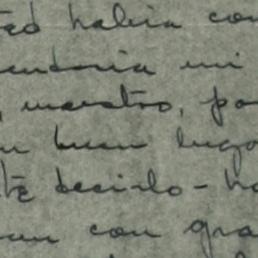 ted habia con
endria mi
, maestro, po
n buen luga
te decirlo - ha
ran con gra